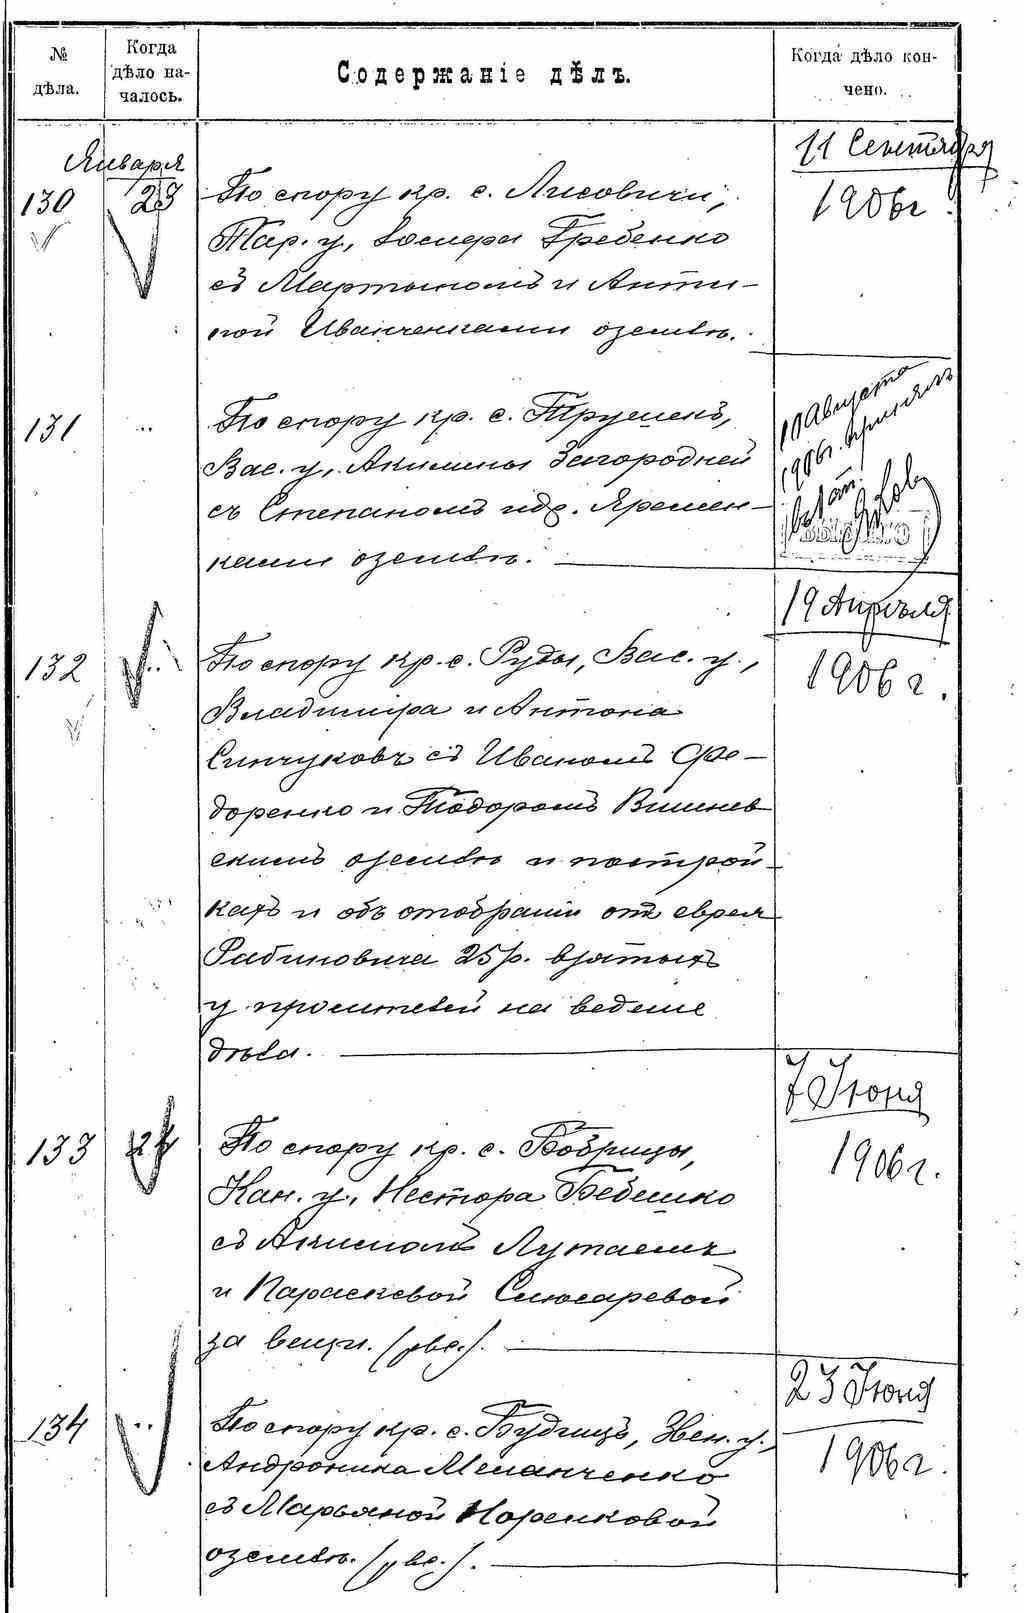 № дѣла.
Когда дѣло началось.
Содержаніе дѣлъ.
Когда дѣло кончено.
Января
130 23
По спору кр. с. Лисовичи,
Тар. у., Гребенко
съ Мартыномъ и Анти-
пой Иванченками о землѣ.
11 Сентября
1906г.
131 ..
По спору кр. с. Трушекъ,
Вас. у., Акилины Загородней
съ Степаномъ и др. Яремен-
ками о землѣ.
10 Августа
1906г.
132 ..
По спору кр. с. Руды, Вас. у.,
Владиміра и Антона
Синчуковъ съ Иваномъ Фе-
доренко и Тодоромъ Вишнев
скимъ о землѣ и построй-
кахъ и объ отобраніи отъ еврея
Рабиновича 25 р. взятыхъ
у просителей на веденіе
дѣла.
19 Апрѣля
1906г.
133 24
По спору кр. с. Бобрицы,
Кан. у., Нестора Бебешко
съ Акимомъ Лутаемъ
и Параскевой Слюсаревой
за вещи.
7 Іюня
1906г.
134 ..
По спору кр. с. Будищъ, Звен. у.,
Андроника Меланченко
съ Марьяной Норенковой
о землѣ.
23 Іюня
1906г.